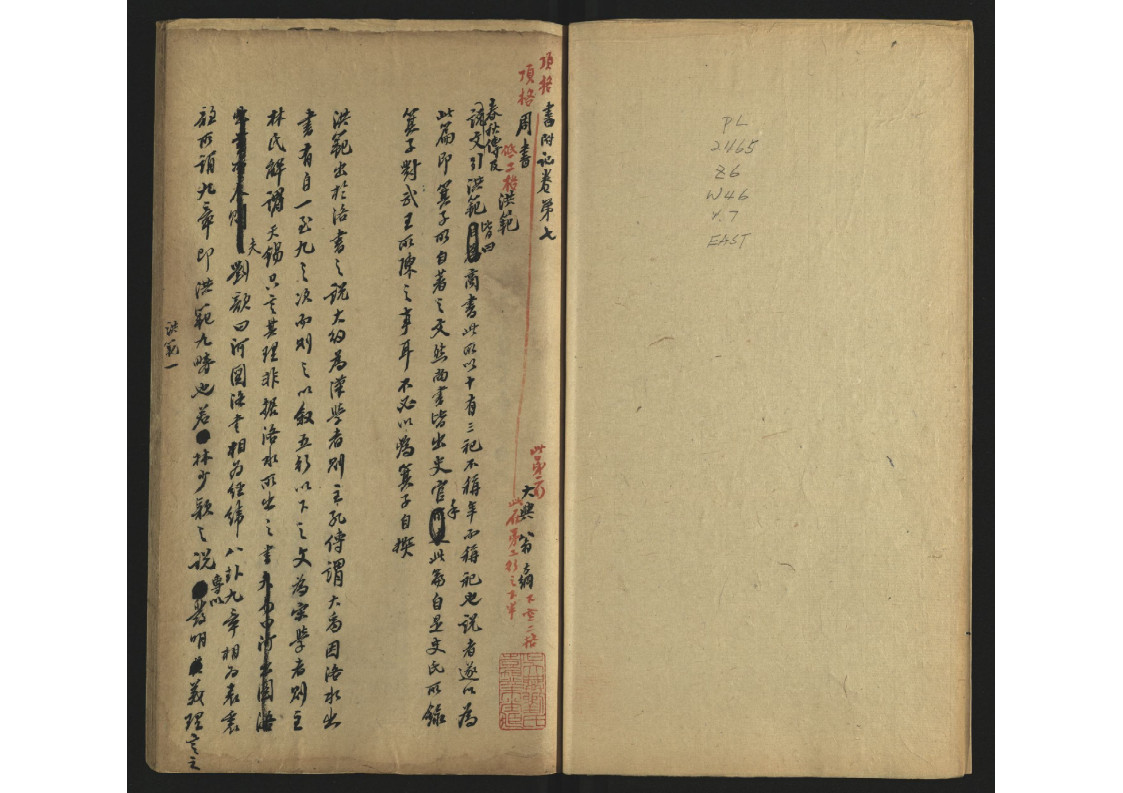 PL
2465
Z6
W46
V.7
EAST
頂格
書附記卷第七
頂格
周書
大興翁方綱
下空二格
此在第二行之下半
低二格
洪範
春秋傳及
說文引洪範皆曰商書此所以十有三祀不稱年而稱祀也說者遂以為
此篇即箕子所自著之文然尚書皆出史官手此篇自是史氏所錄
箕子對武王所陳之事耳不必以為箕子自撰
洪範出於洛書之說大約為漢學者則主孔傳謂大禹因洛水出
書有自一至九之次而則之以敘五行以下之文為宋學者則主
林氏解謂天錫只言其理非據洛水所出之書
夫劉歆曰河圖洛書相為經緯八卦九章相為表裏
歆所謂九章即洪範九疇也若林少穎之說專以發明義理言之
洪範一